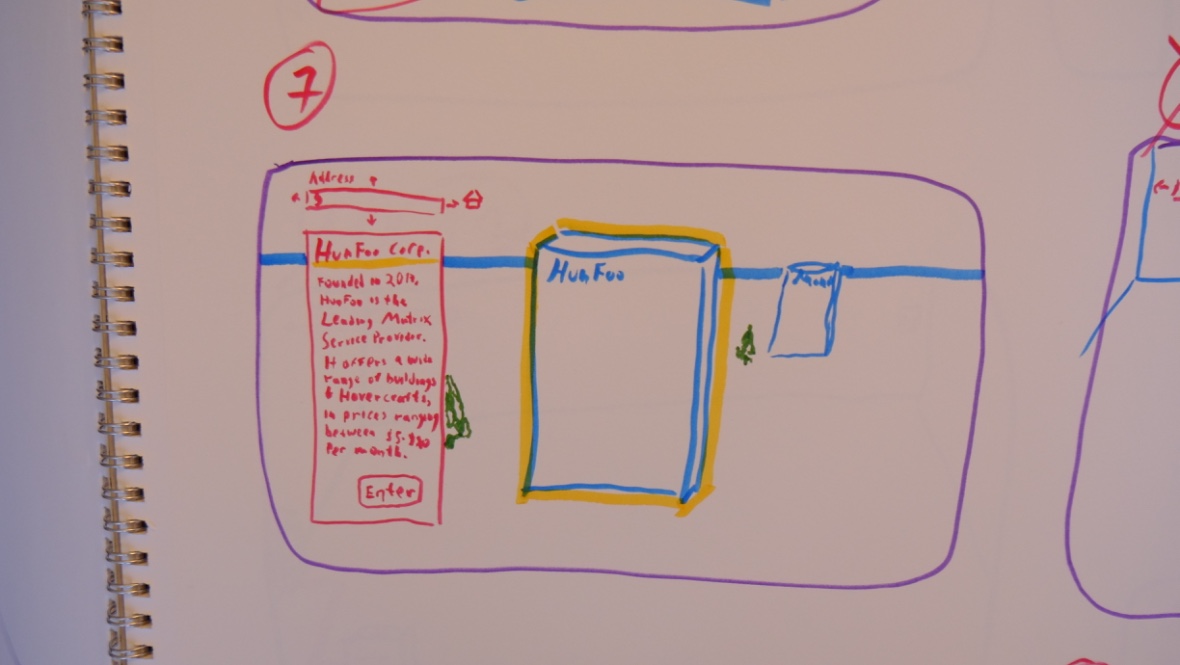 7
Address
HuaFoo Corp.
Founded in 2019,
HuaFoo is the
Leading Matrix
Service Provider.
It offers a wide
range of buildings
& Hovercrafts,
in prices ranging
between
per month.
Enter
HuaFoo